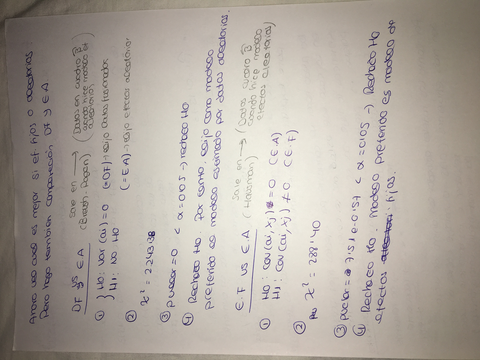 Ahora veo cual es mejor si ef fijos o aleatorios
Para hago tambien comparación DF y E.A
DF vs E.A
sale en → (Breush-Pagan)
(Datos en cuadro B cuando hice modelo Ef aleatorios)
① { H0: var (ai) = 0 (=DF) → Datos fusionados
H1: no H0 (=EA) → efectos aleatorios
② X² = 2243.
③ pvalor = 0 < α = 0,05 → rechazo H0
④ Rechazo H0. Por tanto, elijo como modelo
preferido el modelo estimado por datos aleatorios.
E.F vs E.A
sale en → (Hausman)
(Datos cuadro B cuando hice modelo efectos aleatorios)
① H0: cov(ai, xj) = 0 (E.A)
H1: cov(ai, xj) ≠ 0 (E.F)
② X² = 288'40
③ pvalor = 7'51e-057 < α = 0,05 → Rechazo H0
④ Rechazo H0. Modelo preferido es modelo de
efectos fijos.